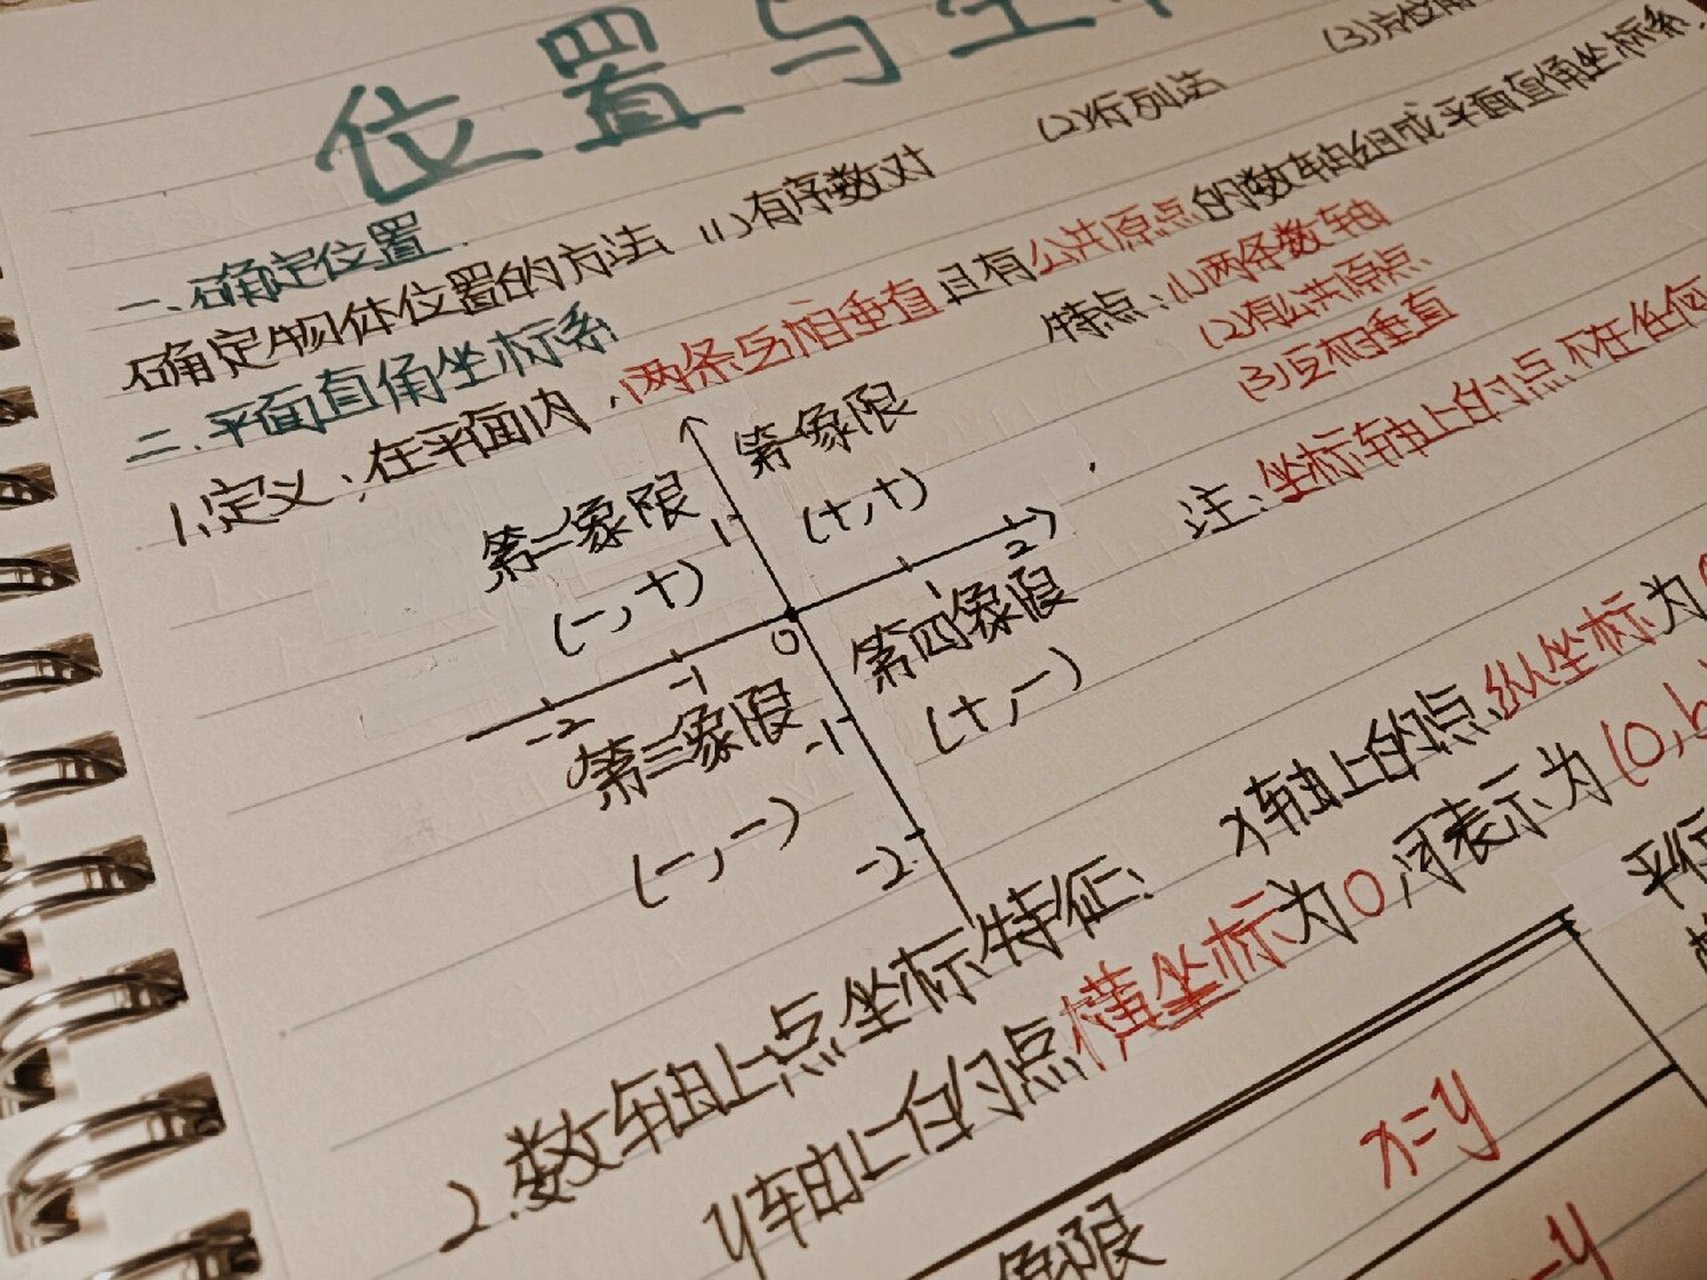 位置与坐
一、确定位置
确定物体位置的方法 (1)有序数对 (2)行列法 (3)方位角
二.平面直角坐标系
1.定义：在平面内，两条互相垂直且有公共原点的数轴组成平面直角坐标系
特点：(1)两条数轴
(2)有公共原点
(3)互相垂直
第一象限
(+,+)
第二象限
(-,+)
1
1 2
0
-1
-2
第四象限
(+,-)
第三象限
(-,-)
-1
-2
注：坐标轴上的点不在任何
2.数轴上点坐标特征： x轴上的点，纵坐标为
y轴上的点横坐标为0，可表示为(0,b
平行
x=y
象限
-y